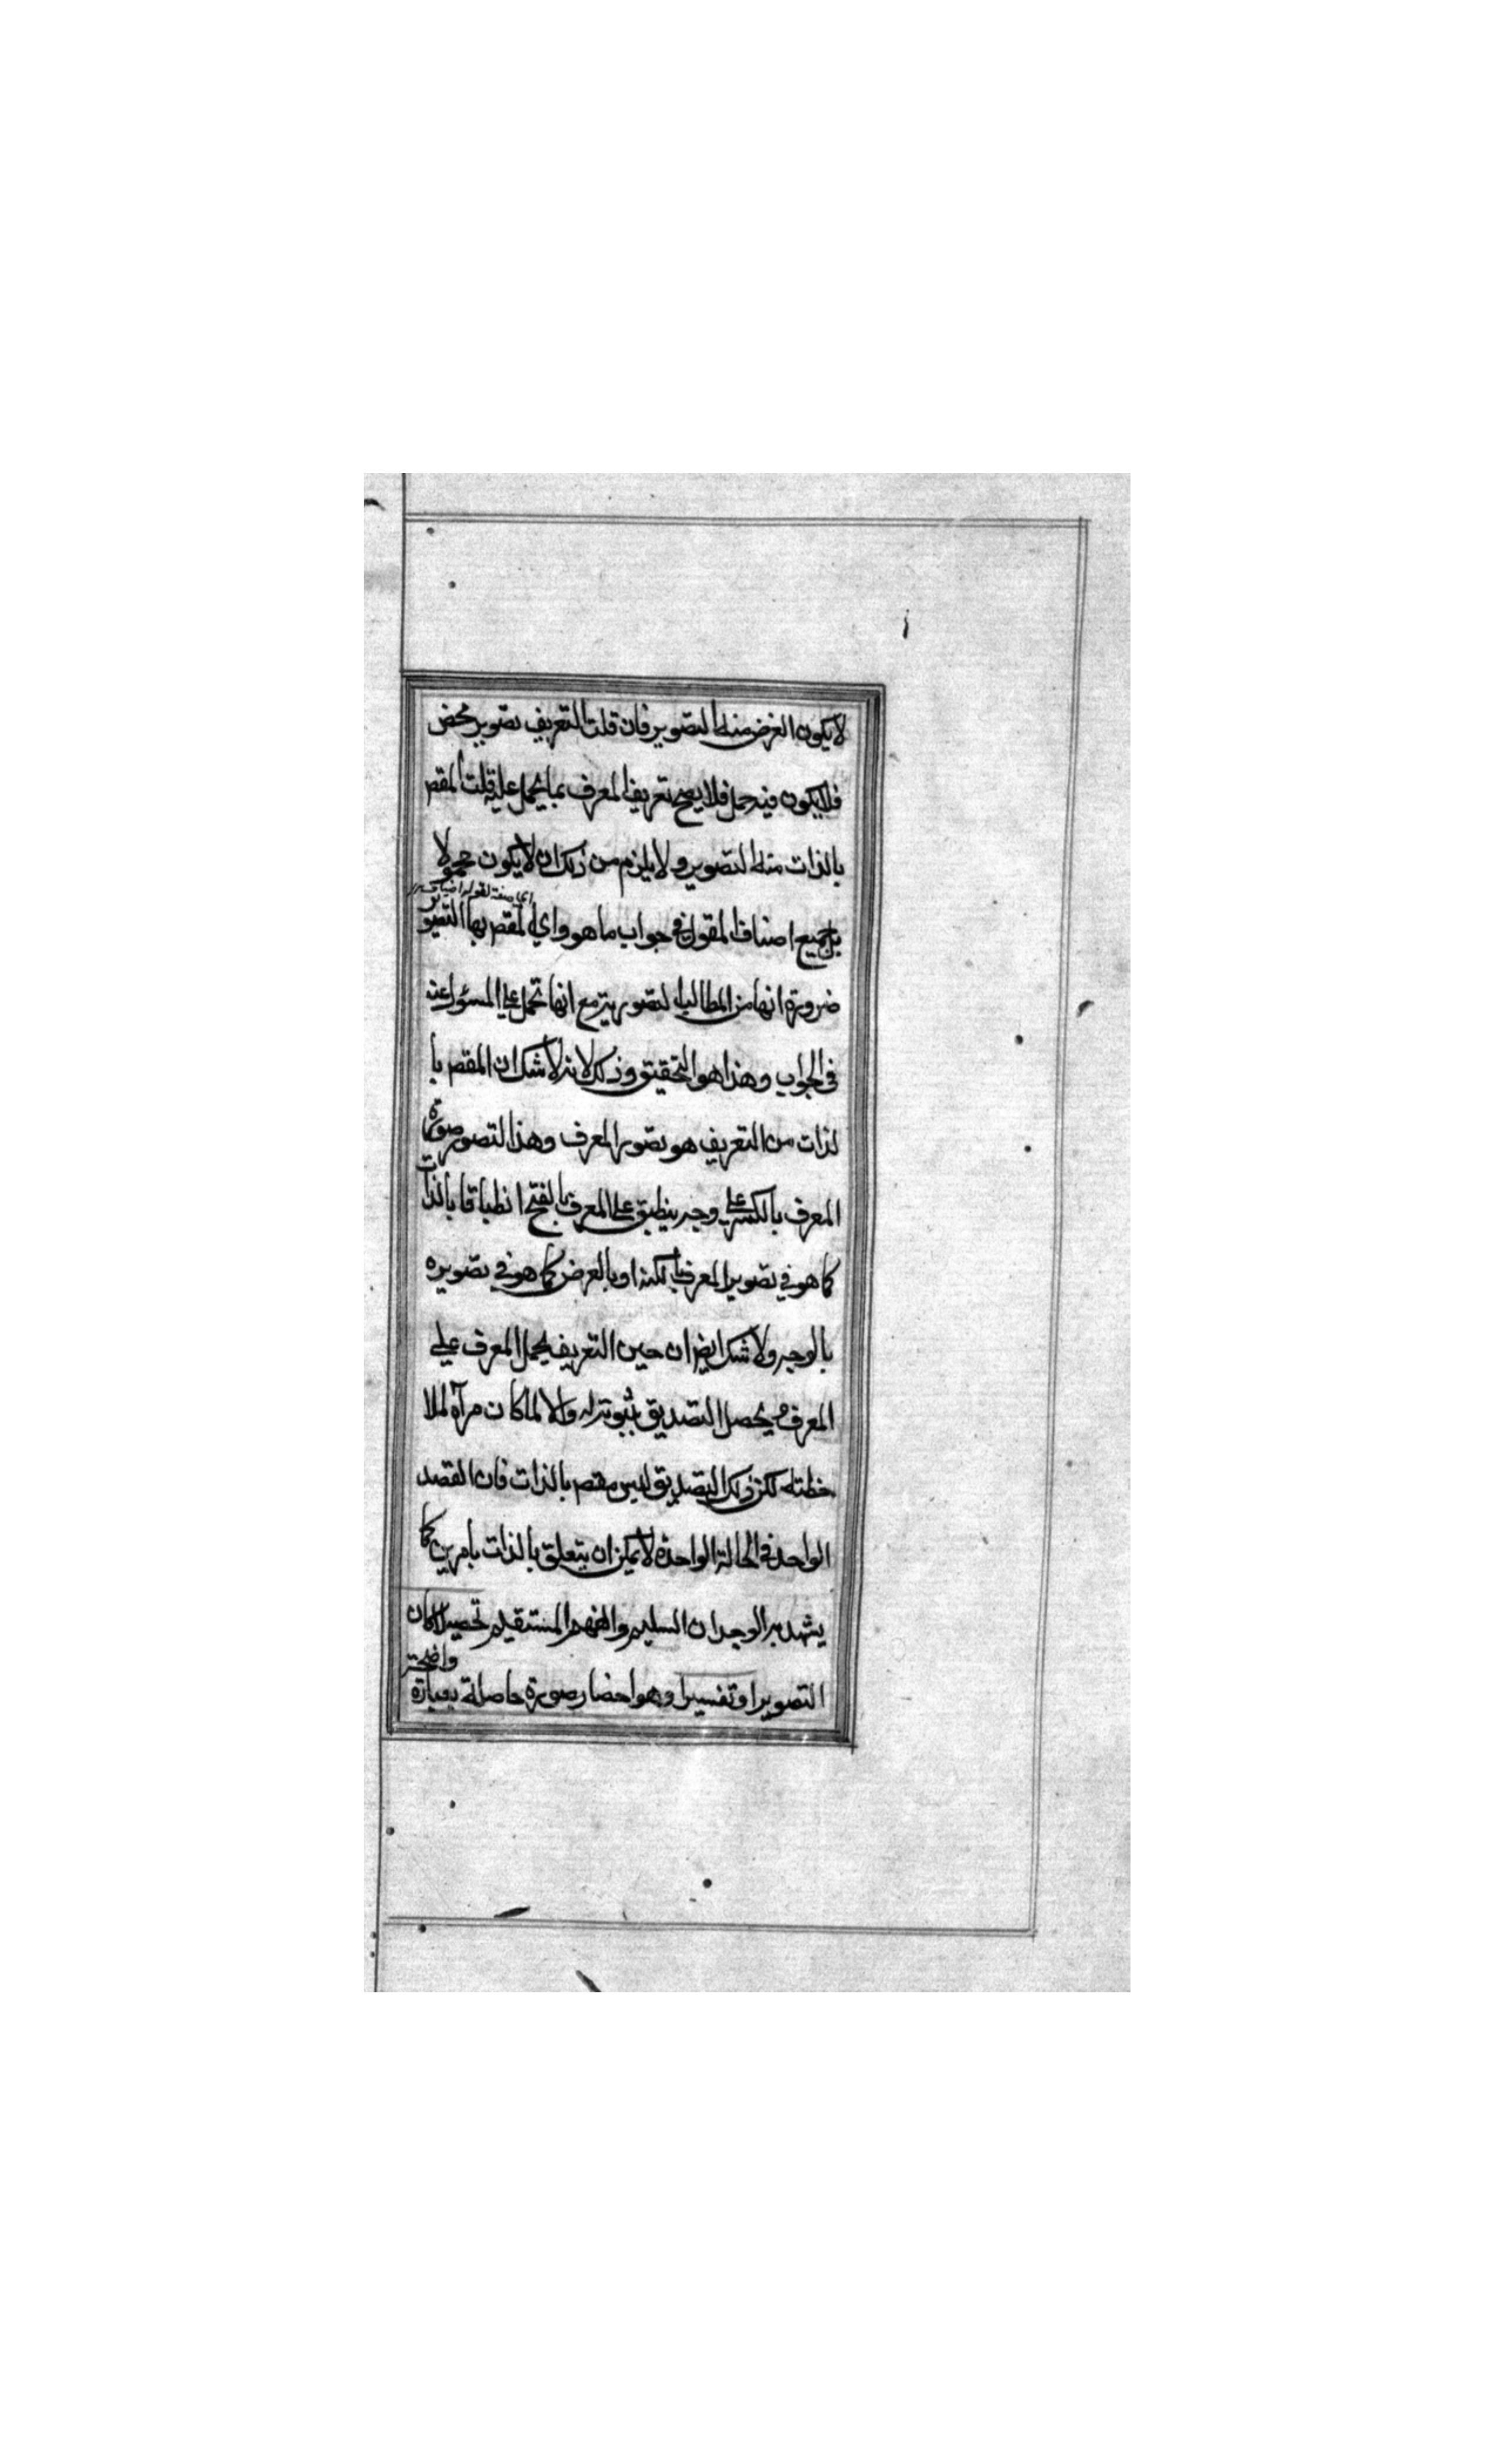 لا يكون الغرض منه التصوير فان قلت التعريف تصوير محض
فلا يكون فيه حمل فلا يصح تعريف المعرف بما يحمل عليه قلت المقصم
بالذات منه التصوير ولا يلزم من ذلك ان لا يكون محمولا
اي صفة لقوله اصناف
بل جميع اصناف المقول في جواب ما هو واي المقصم بها التصوير
ضرورة انها من المطالب التصويرية مع انها تحمل على المسؤل عنه
في الجواب وهذا هو التحقيق وذلك لانه لا شك ان المقصم با
لذات من التعريف هو تصوير المعرف وهذا التصوير صورة
المعرف بالكسر على وجه ينطبق على المعرف بالفتح انطباقا بالذات
كما هو في تصوير المعرف بالكنه او بالعرض كما هو في تصويره
بالوجه ولا شك ايضا ان حين التعريف يحمل المعرف على
المعرف ويحصل التصديق بثبوته له والا لما كان مرآة لملا
حظته لكن ذلك التصديق ليس مقصم بالذات فان القصد
الواحد في الحالة الواحدة لا يمكن ان يتعلق بالذات بأمرين كما
يشهد به الوجدان السليم والفهم المستقيم تحصيلا كان
التصوير او تفسيرا وهو احضار صورة حاصلة بعبارة واضحة